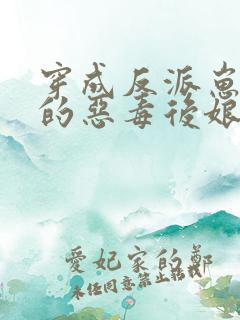 穿成反派崽
的惡毒後娘
愛妃家的鄭
未任同意禁止轉載